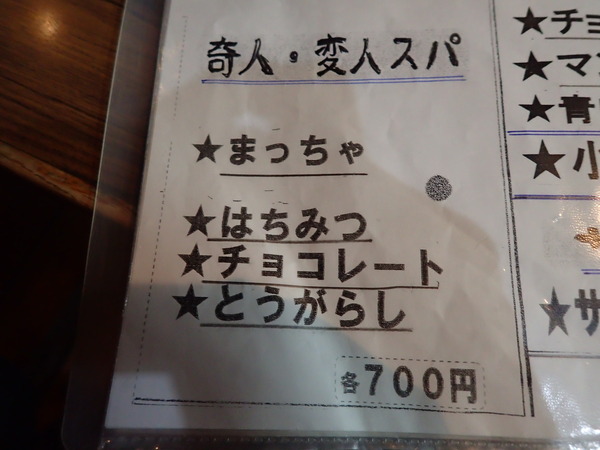 奇人・変人スパ
★まっちゃ
★はちみつ
★チョコレート
★とうがらし
各700円
★チョ
★マン
★青
★小
★サ